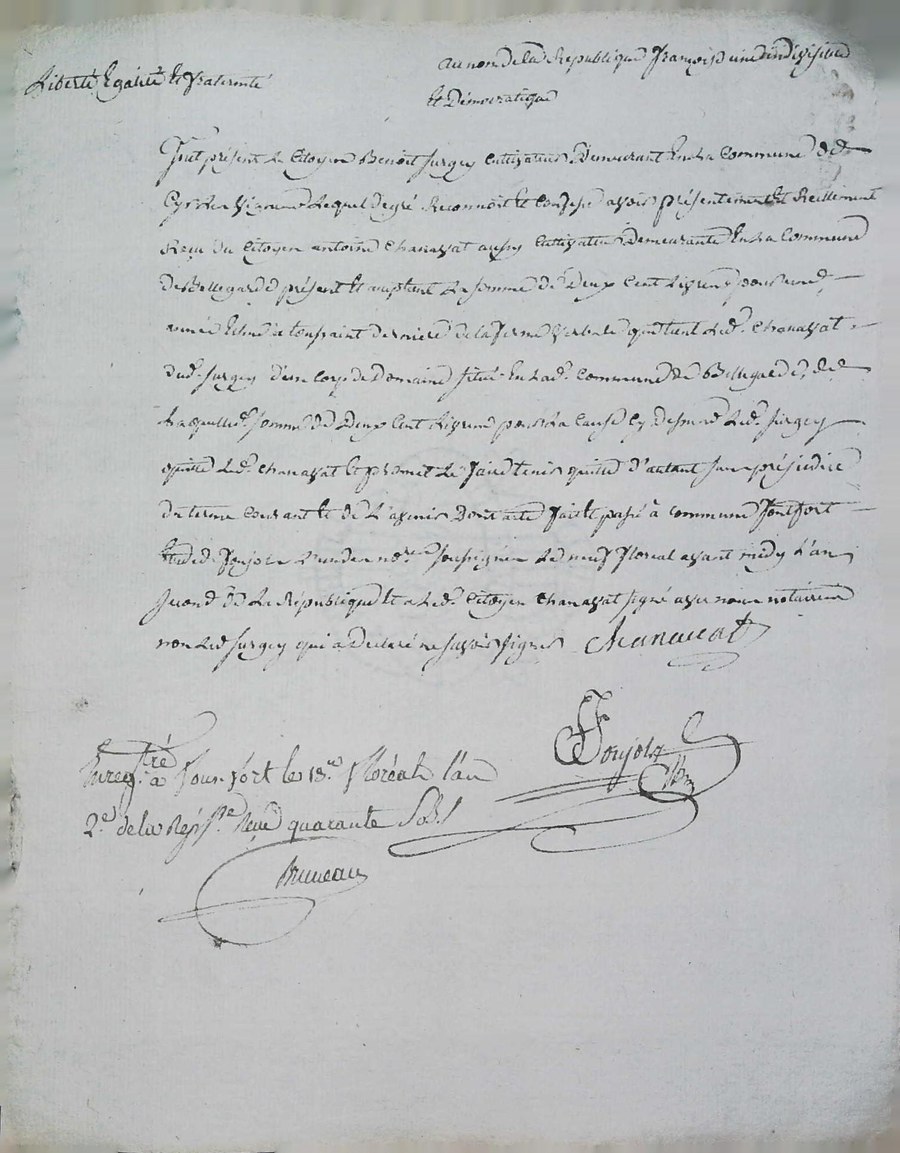 Liberté Egalité et fraternité
au nom de la Republique françoise une indivisible
et Démocratique
fut présent le Citoyen Benoit Surgey Cultivateur Demeurant En La Commune de
Cyr les Vignes Lequel degré Reconnoit et Confesse avoir présentement et Reellement
Reçu du Citoyen antoine Chanavat aussy Cultivateur Demeurant En La Commune
de Bellegarde présent et acceptant La somme de Deux Cent Livres pour une
année Echue a toussaint derniere de la ferme verbale que tient Led. Chanavat
dud. Surgey d'un Corp de Domaine situé En Lad. Commune de Bellegarde, de
Laquelle somme de Deux Cent Livres pour La Cause Cy Dessus Led. Surgey
quitte Led. Chanavat et promet Le faire tenir quitte d'autant sans préjudice
du terme Courant et de L'avenir Dont acte fait et passé à Commune fontfort
Foujols L'un des no.res soussignés Le neuf floreal avant midy L'an
second de La République et a Led. Citoyen Chanavat signé avec nous notaire
non Led Surgey qui a declaré ne savoir signer Chanavat
Foujols
Enreg.tré à Fonfort le 18.e floréal l'an
2.e de la Rép. Reçu quarante Sols
Bruneau